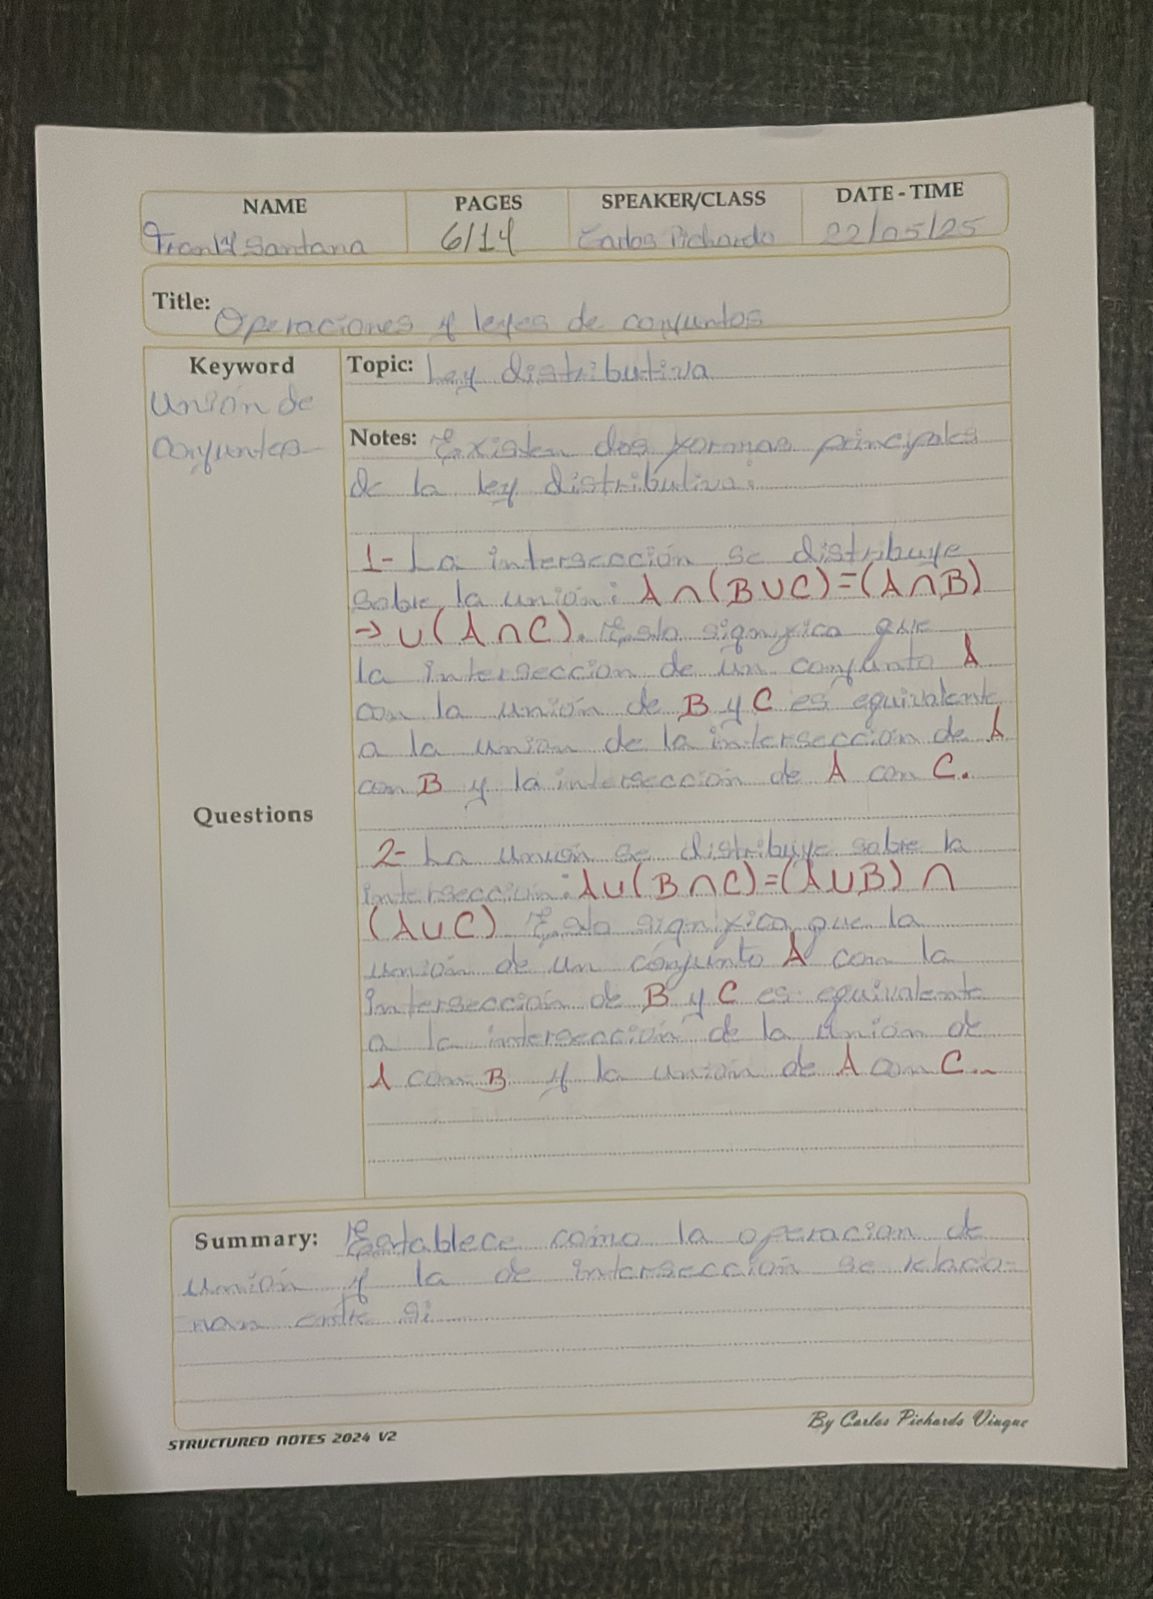 NAME PAGES SPEAKER/CLASS DATE - TIME
Frankly Santana 6/14 Carlos Pichardo 22/05/25
Title: Operaciones y leyes de conjuntos
Keyword
Unión de
conjuntos
Topic: Ley distributiva
Notes: Existen dos formas principales
de la ley distributiva:
1- La intersección se distribuye
sobre la unión: A∩(B∪C)=(A∩B)
→ ∪(A∩C). Esto significa que
la intersección de un conjunto A
con la unión de B y C es equivalente
a la unión de la intersección de A
con B y la intersección de A con C.
Questions
2- La unión se distribuye sobre la
intersección: A∪(B∩C)=(A∪B) ∩
(A∪C). Esto significa que la
unión de un conjunto A con la
intersección de B y C es equivalente
a la intersección de la unión de
A con B y la unión de A con C..
Summary: Establece como la operacion de
unión y la de intersección se relacio-
nan entre si
STRUCTURED NOTES 2024 V2
By Carlos Pichardo Vinque